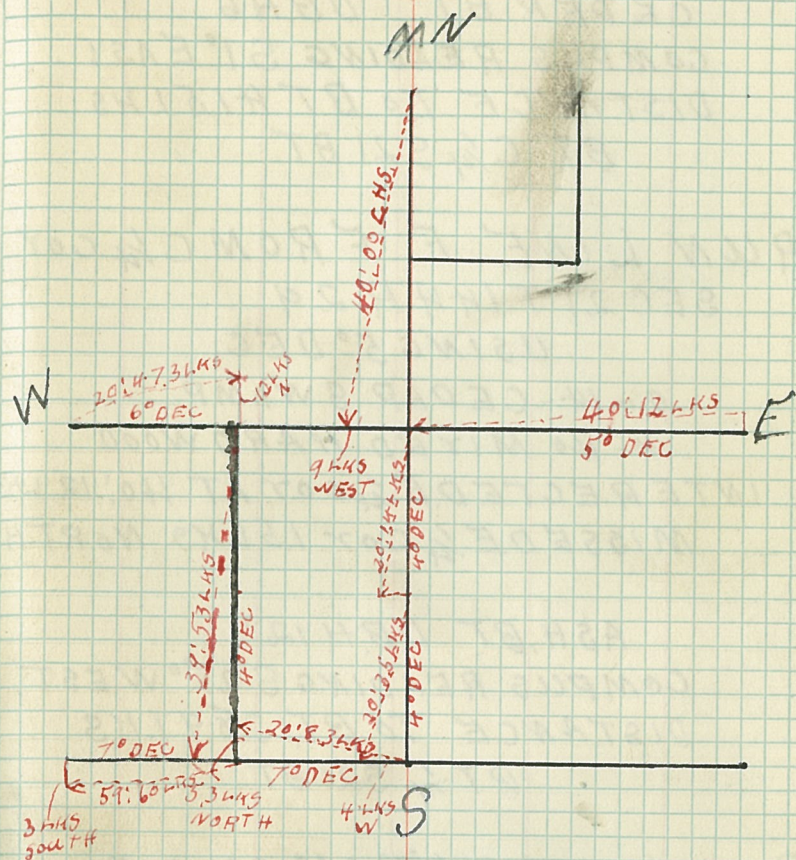 N
40'.00 CHS
20'.47.3 LKS
12 LKS
N
W
6° DEC
40'.12 LKS
E
5° DEC
9 LKS
WEST
20'.14 LKS
4° DEC
39'.53 LKS
4° DEC
20'.35 LKS
4° DEC
20'.8.3 LKS
7° DEC
7° DEC
59'.60 LKS
5.3 LKS
NORTH
4 LKS
W
S
3 LKS
SOUTH